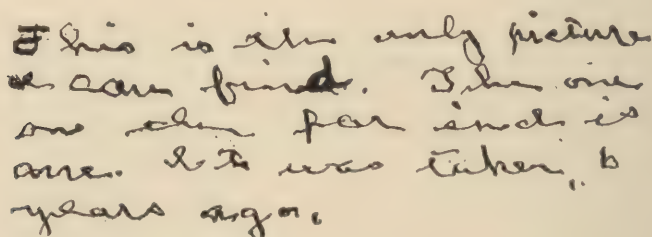 This is the only picture
I can find. The one
on the far end is
me. It was taken, 6
years ago.